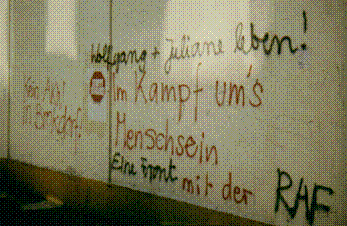 Wolfgang + Juliane leben!
Im Kampf um's
Menschsein
Eine Front mit der RAF
Kein AKW
in Brokdorf!